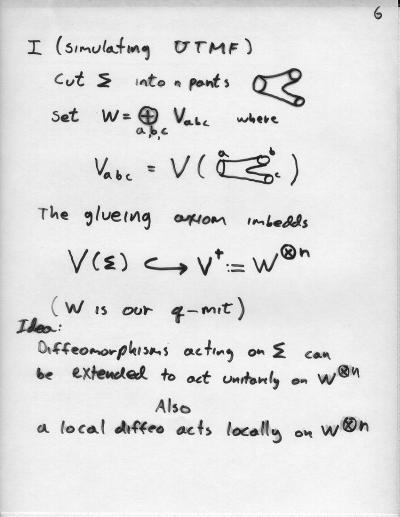 6
I (simulating UTMF)
Cut Σ into n pants
Set W = ⊕ Vabc where
a,b,c
a b
Vabc = V ( )
c
The glueing axiom imbedds
V(Σ) ↪ V⁺ := W⊗n
(W is our q-mit)
Idea:
Diffeomorphisms acting on Σ can
be extended to act unitarily on W⊗n
Also
a local diffeo acts locally on W⊗n